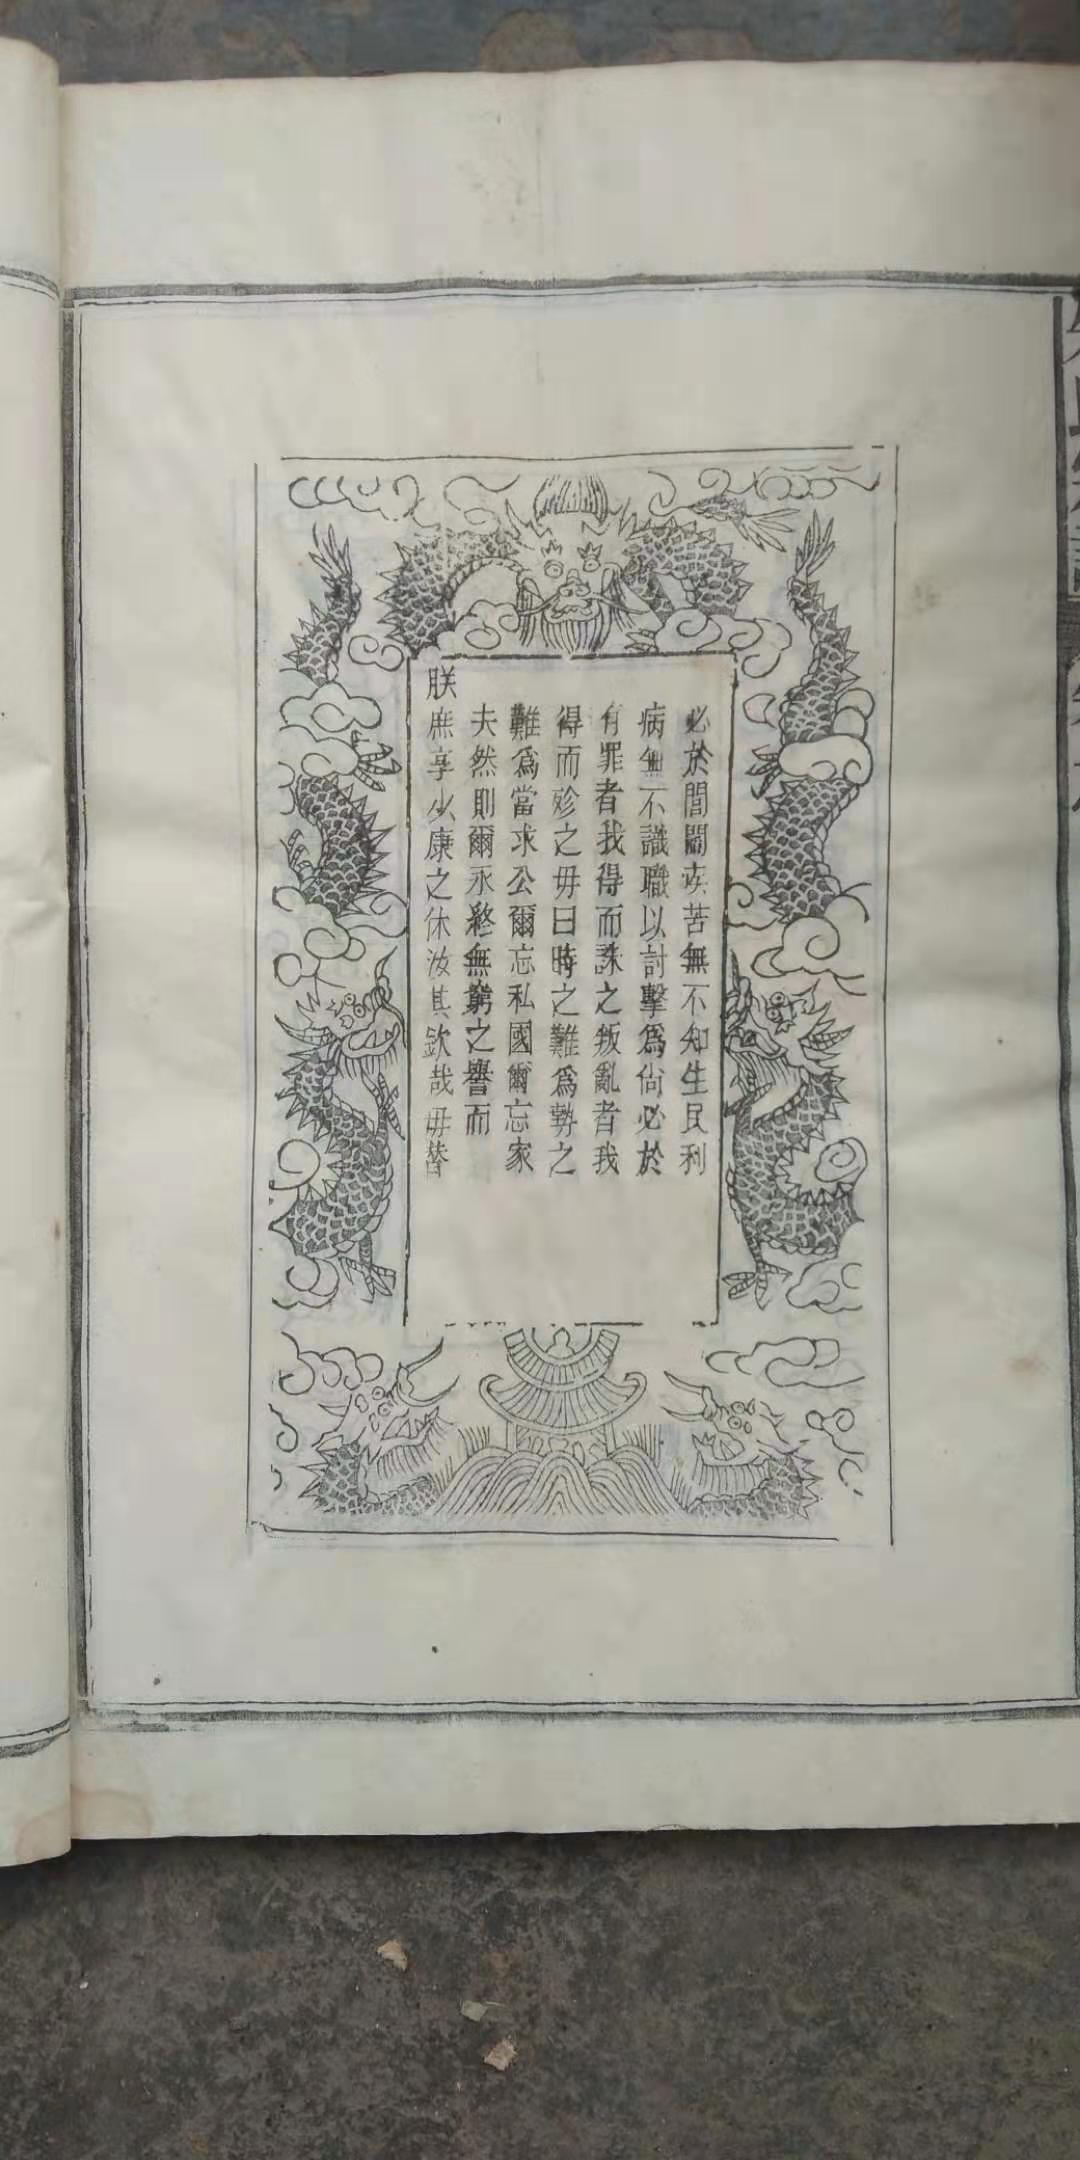 必於閭閻疾苦無不知生民利
病無不識職以討擊爲尚必於
有罪者我得而誅之叛亂者我
得而殄之毋曰時之難爲勢之
難爲當求公爾忘私國爾忘家
夫然則爾永終無窮之譽而
朕庶享乂康之休汝其欽哉毋替